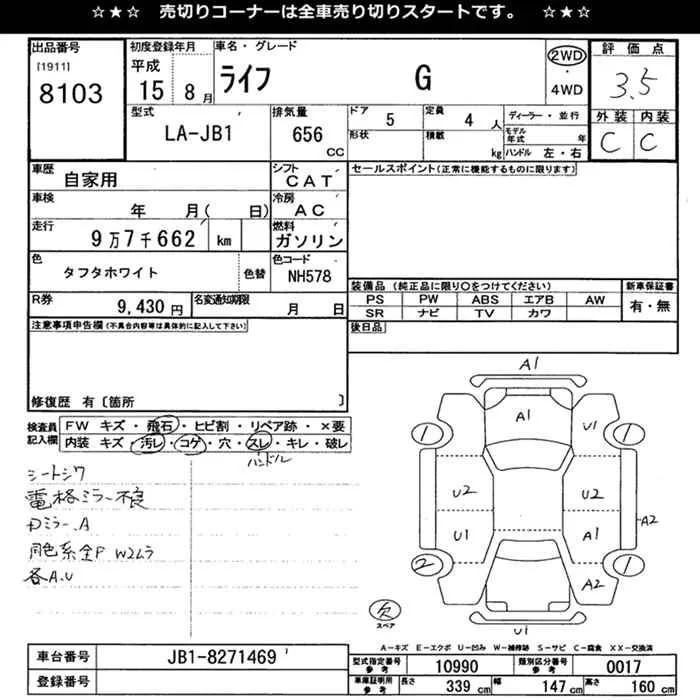 ☆★☆ 売切りコーナーは全車売り切りスタートです。 ☆★☆
出品番号
[1911]
8103
初度登録年月
平成
15 8月
車名・グレード
ライフ G
2WD
・
4WD
評価点
3.5
外装 内装
C C
型式
LA-JB1
排気量
656 cc
ドア 5
定員 4 人
形状
積載 kg
ディーラー・並行
モデル年式 年
ハンドル 左・右
車歴
自家用
シフト
CAT
車検
年 月( 日)
冷房
AC
走行
9万7千662 km
燃料
ガソリン
色
タフタホワイト
色替
色コード
NH578
R券
9,430 円
名変通知期限
月 日
セールスポイント(正常に機能するものに限ります)
装備品 (純正品に限り○をつけてください)
PS PW ABS エアB AW
SR ナビ TV カワ
新車保証書
有・無
後日品
注意事項申告欄(不具合内容等は具体的に記入して下さい)
修復歴 有〔箇所 〕
検査員記入欄
FW キズ・飛石・ヒビ割・リペア跡・×要
内装 キズ・汚レ・コゲ・穴・スレ・キレ・破レ
ハンドル
シートシワ
電格ミラー不良
Dミラー.A
同色系全P Wムラ
各A.U
A1
A1
U1
1
1
U2
U2
A2
U1
A1
2
1
A2
U1
欠
スペア
A-キズ E-エクボ U-凹み W-補修跡 S-サビ C-腐食 XX-交換済
車台番号
JB1-8271469
登録番号
型式指定番号 参考
10990
類別区分番号 参考
0017
車庫証明用 参考
長さ 339 cm
幅 147 cm
高さ 160 cm